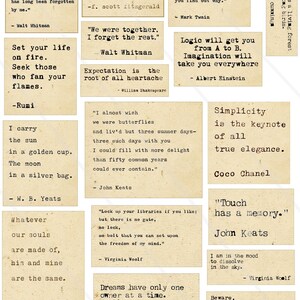 been forgotten
by me."
- Walt Whitman
Set your life
on fire.
Seek those
who fan your
flames.
-Rumi
I carry
the sun
in a golden cup.
The moon
in a silver bag.
- W. B. Yeats
Whatever
our souls
are made of,
his and mine
are the same.
-f. scott fitzgerald
"We were together.
I forget the rest."
- Walt Whitman
Expectation is the
root of all heartache
- William Shakespeare
"I almost wish
we were butterflies
and liv'd but three summer days-
three such days with you
I could fill with more delight
than fifty common years
could ever contain."
- John Keats
"Lock up your libraries if you like;
but there is no gate,
no lock,
no bolt that you can set upon
the freedom of my mind."
- Virginia Woolf
Dreams have only one
owner at a time.
- Mark Twain
Logic will get you
from A to B.
Imagination will
take you everywhere
- Albert Einstein
Simplicity
is the keynote
of all
true elegance.
Coco Chanel
"Touch
has a memory."
John Keats
I am in the mood
to dissolve
in the sky.
- Virginia Woolf
Beware,